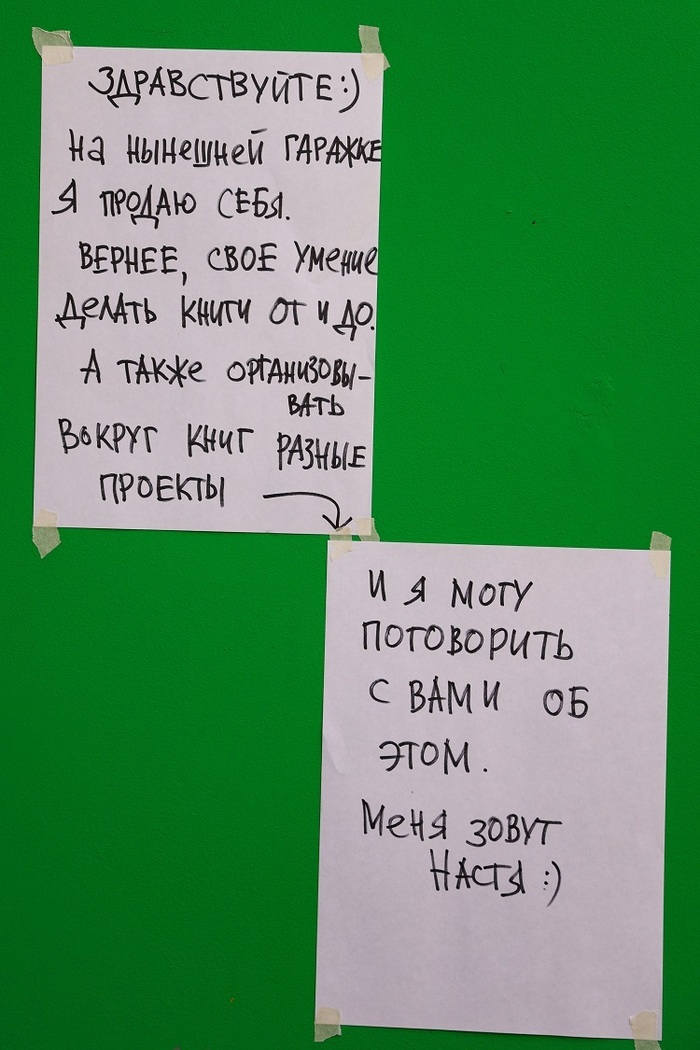 ЗДРАВСТВУЙТЕ:)
На нынешней ГАРАЖКЕ
Я ПРОДАЮ СЕБЯ.
ВЕРНЕЕ, СВОЕ Умение
ДеЛАТЬ КНИГИ ОТ И ДО.
А ТАКЖе ОРГАНИЗОВЫ-
ВАТЬ
ВОКРУГ КНИГ РАЗНЫЕ
ПРОЕКТЫ
И Я МОГУ
ПОГОВОРИТЬ
С ВАМИ ОБ
ЭТОМ.
МеНЯ ЗОВУТ
НАСТЯ :)